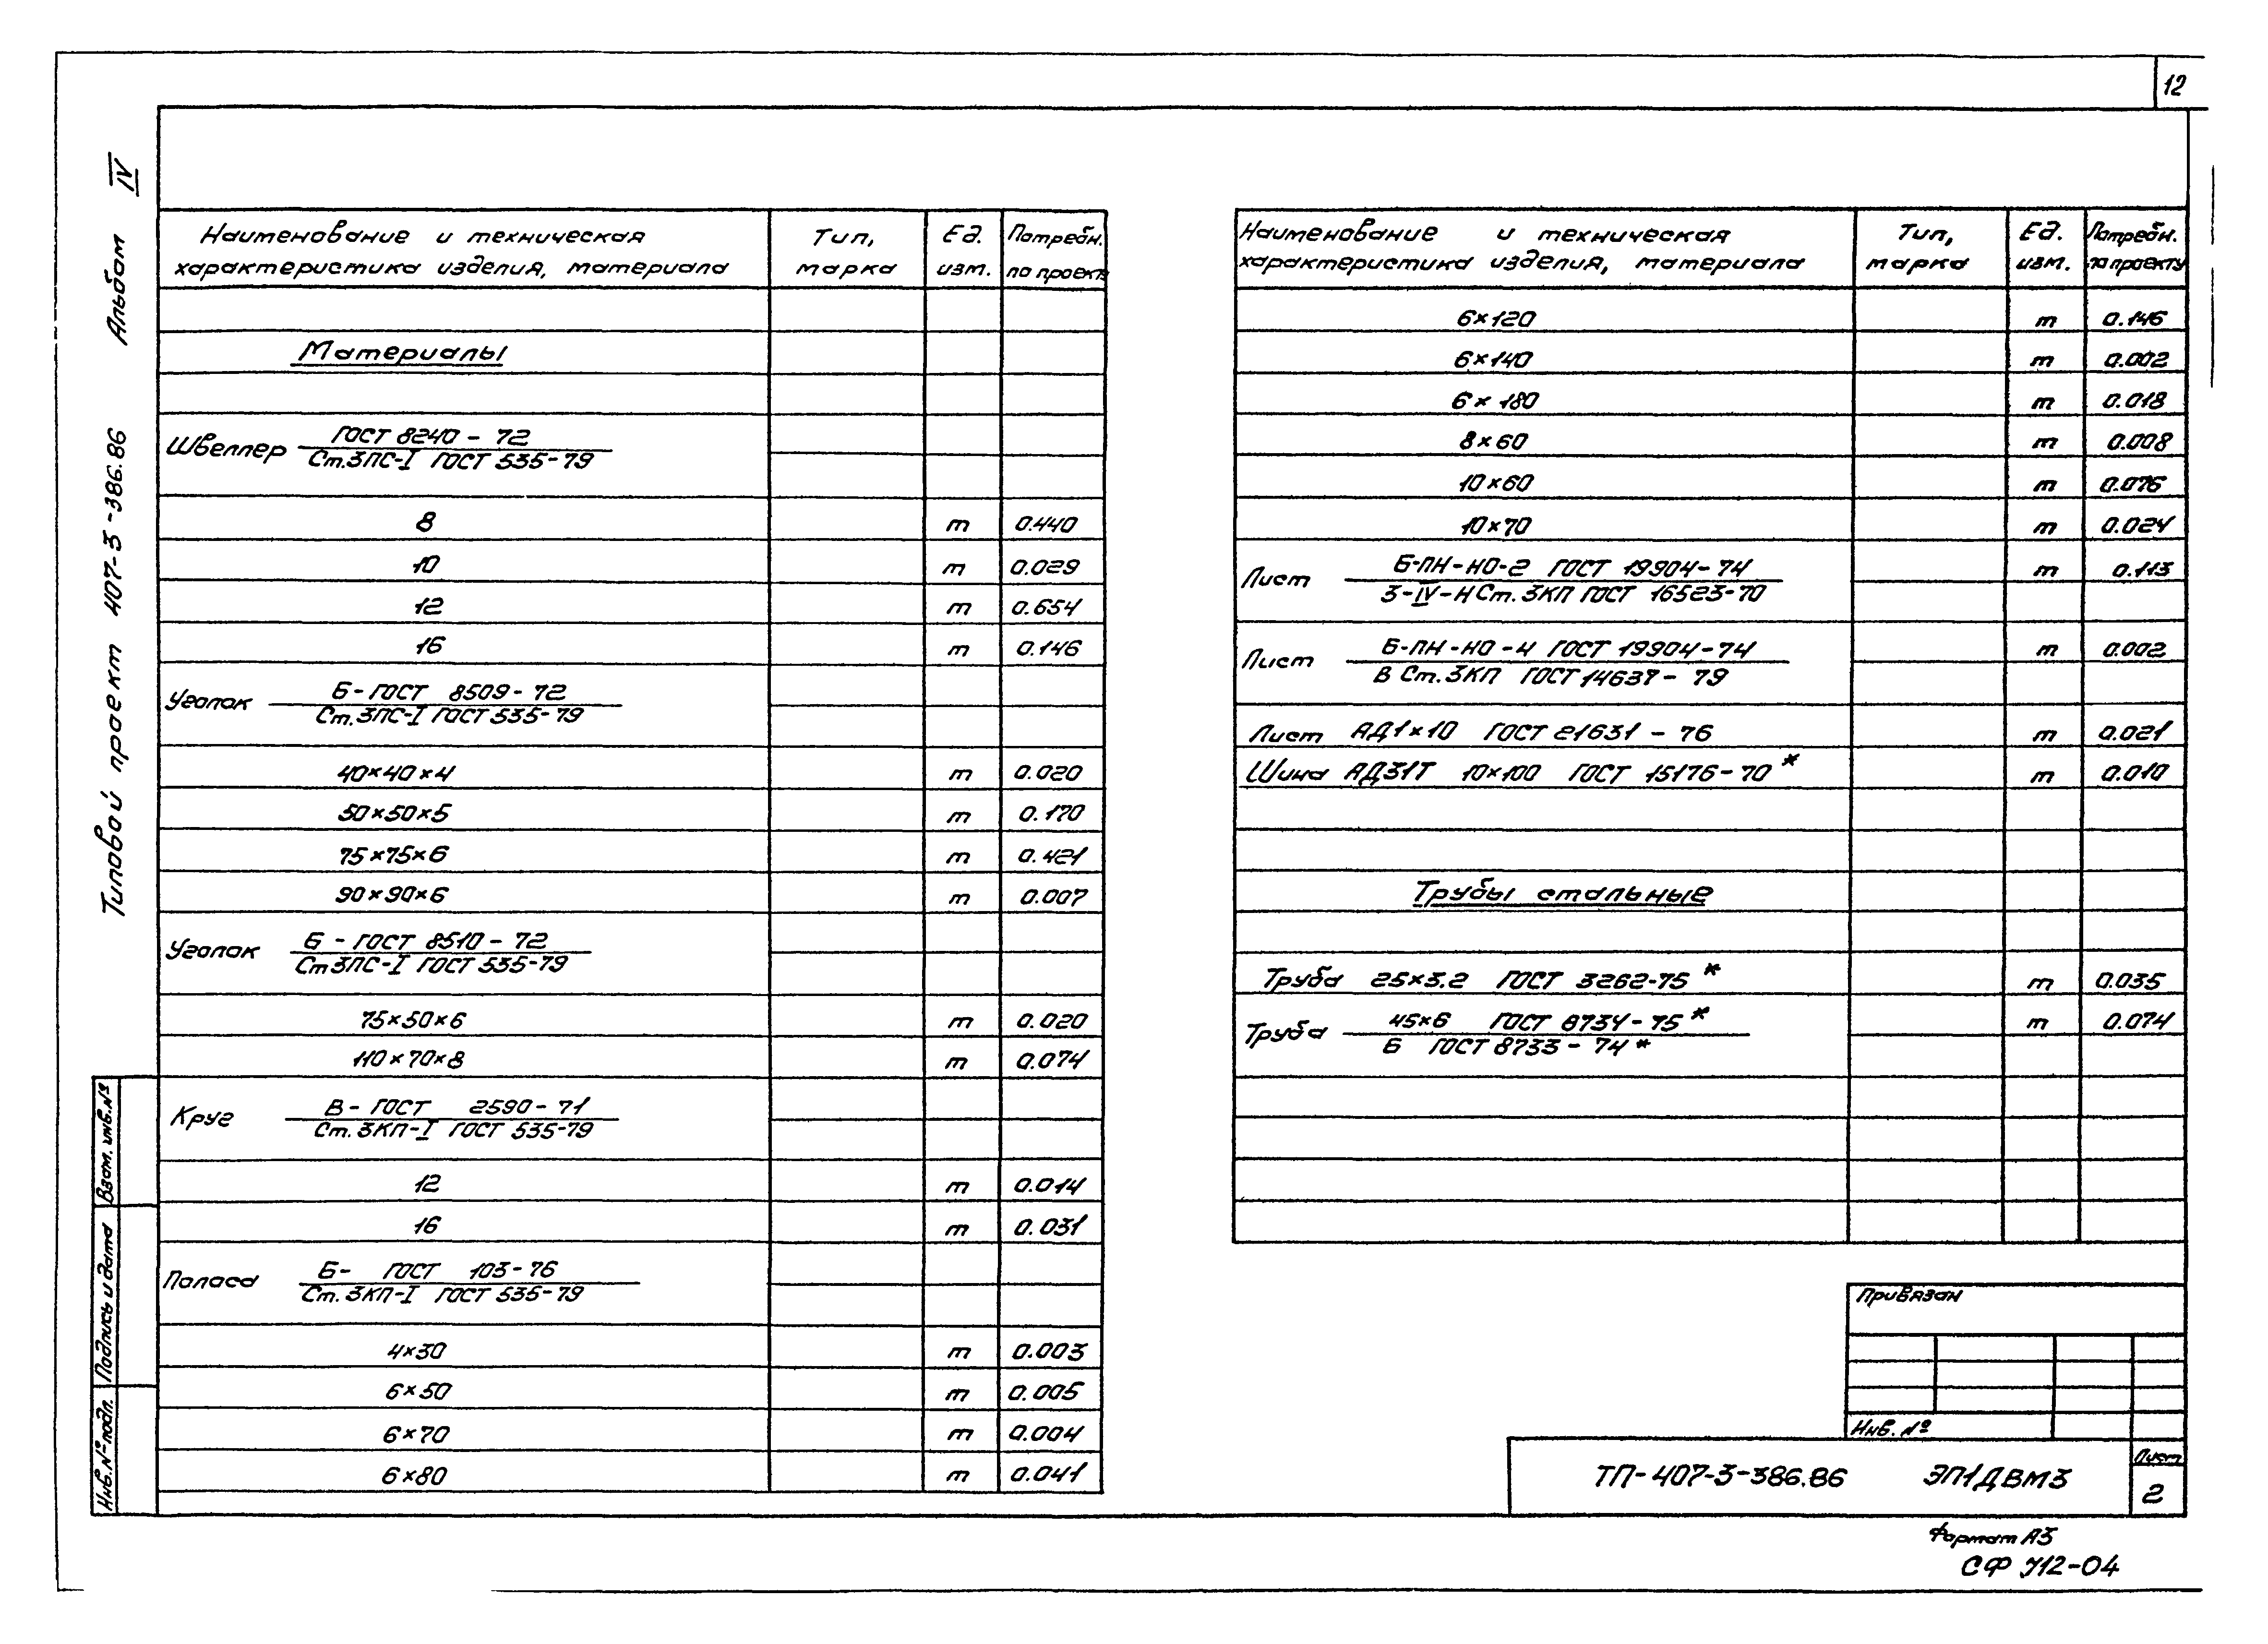 12
Альбом IV
Типовой проект 407-3-386.86
Взам. инв.№
Подпись и дата
Инв.№ подл.
Наименование и техническая характеристика изделия, материала
Тип, марка
Ед. изм.
Потребн. по проекту
Материалы
Швеллер ГОСТ 8240-72
Ст.3ПС-I ГОСТ 535-79
8 т 0.440
10 т 0.029
12 т 0.654
16 т 0.146
Уголок Б-ГОСТ 8509-72
Ст.3ПС-I ГОСТ 535-79
40×40×4 т 0.020
50×50×5 т 0.170
75×75×6 т 0.421
90×90×6 т 0.007
Уголок Б-ГОСТ 8510-72
Ст3ПС-I ГОСТ 535-79
75×50×6 т 0.020
110×70×8 т 0.074
Круг В-ГОСТ 2590-71
Ст.3КП-I ГОСТ 535-79
12 т 0.014
16 т 0.031
Полоса Б- ГОСТ 103-76
Ст.3КП-I ГОСТ 535-79
4×30 т 0.003
6×50 т 0.005
6×70 т 0.004
6×80 т 0.041
Наименование и техническая характеристика изделия, материала
Тип, марка
Ед. изм.
Потребн. по проекту
6×120 т 0.146
6×140 т 0.002
6×180 т 0.018
8×60 т 0.008
10×60 т 0.076
10×70 т 0.024
Лист Б-ПН-НО-2 ГОСТ 19904-74 т 0.113
3-IV-Н Ст.3КП ГОСТ 16523-70
Лист Б-ПН-НО-4 ГОСТ 19904-74 т 0.002
В Ст.3КП ГОСТ 14637-79
Лист АД1×10 ГОСТ 21631-76 т 0.021
Шина АД31Т 10×100 ГОСТ 15176-70* т 0.010
Трубы стальные
Труба 25×3.2 ГОСТ 3262-75* т 0.035
Труба 45×6 ГОСТ 8734-75* т 0.074
Б ГОСТ 8733-74*
Привязан
Инв. №
ТП-407-3-386.86 ЭП1ДВМ3
Лист
2
Формат А3
СФ 712-04